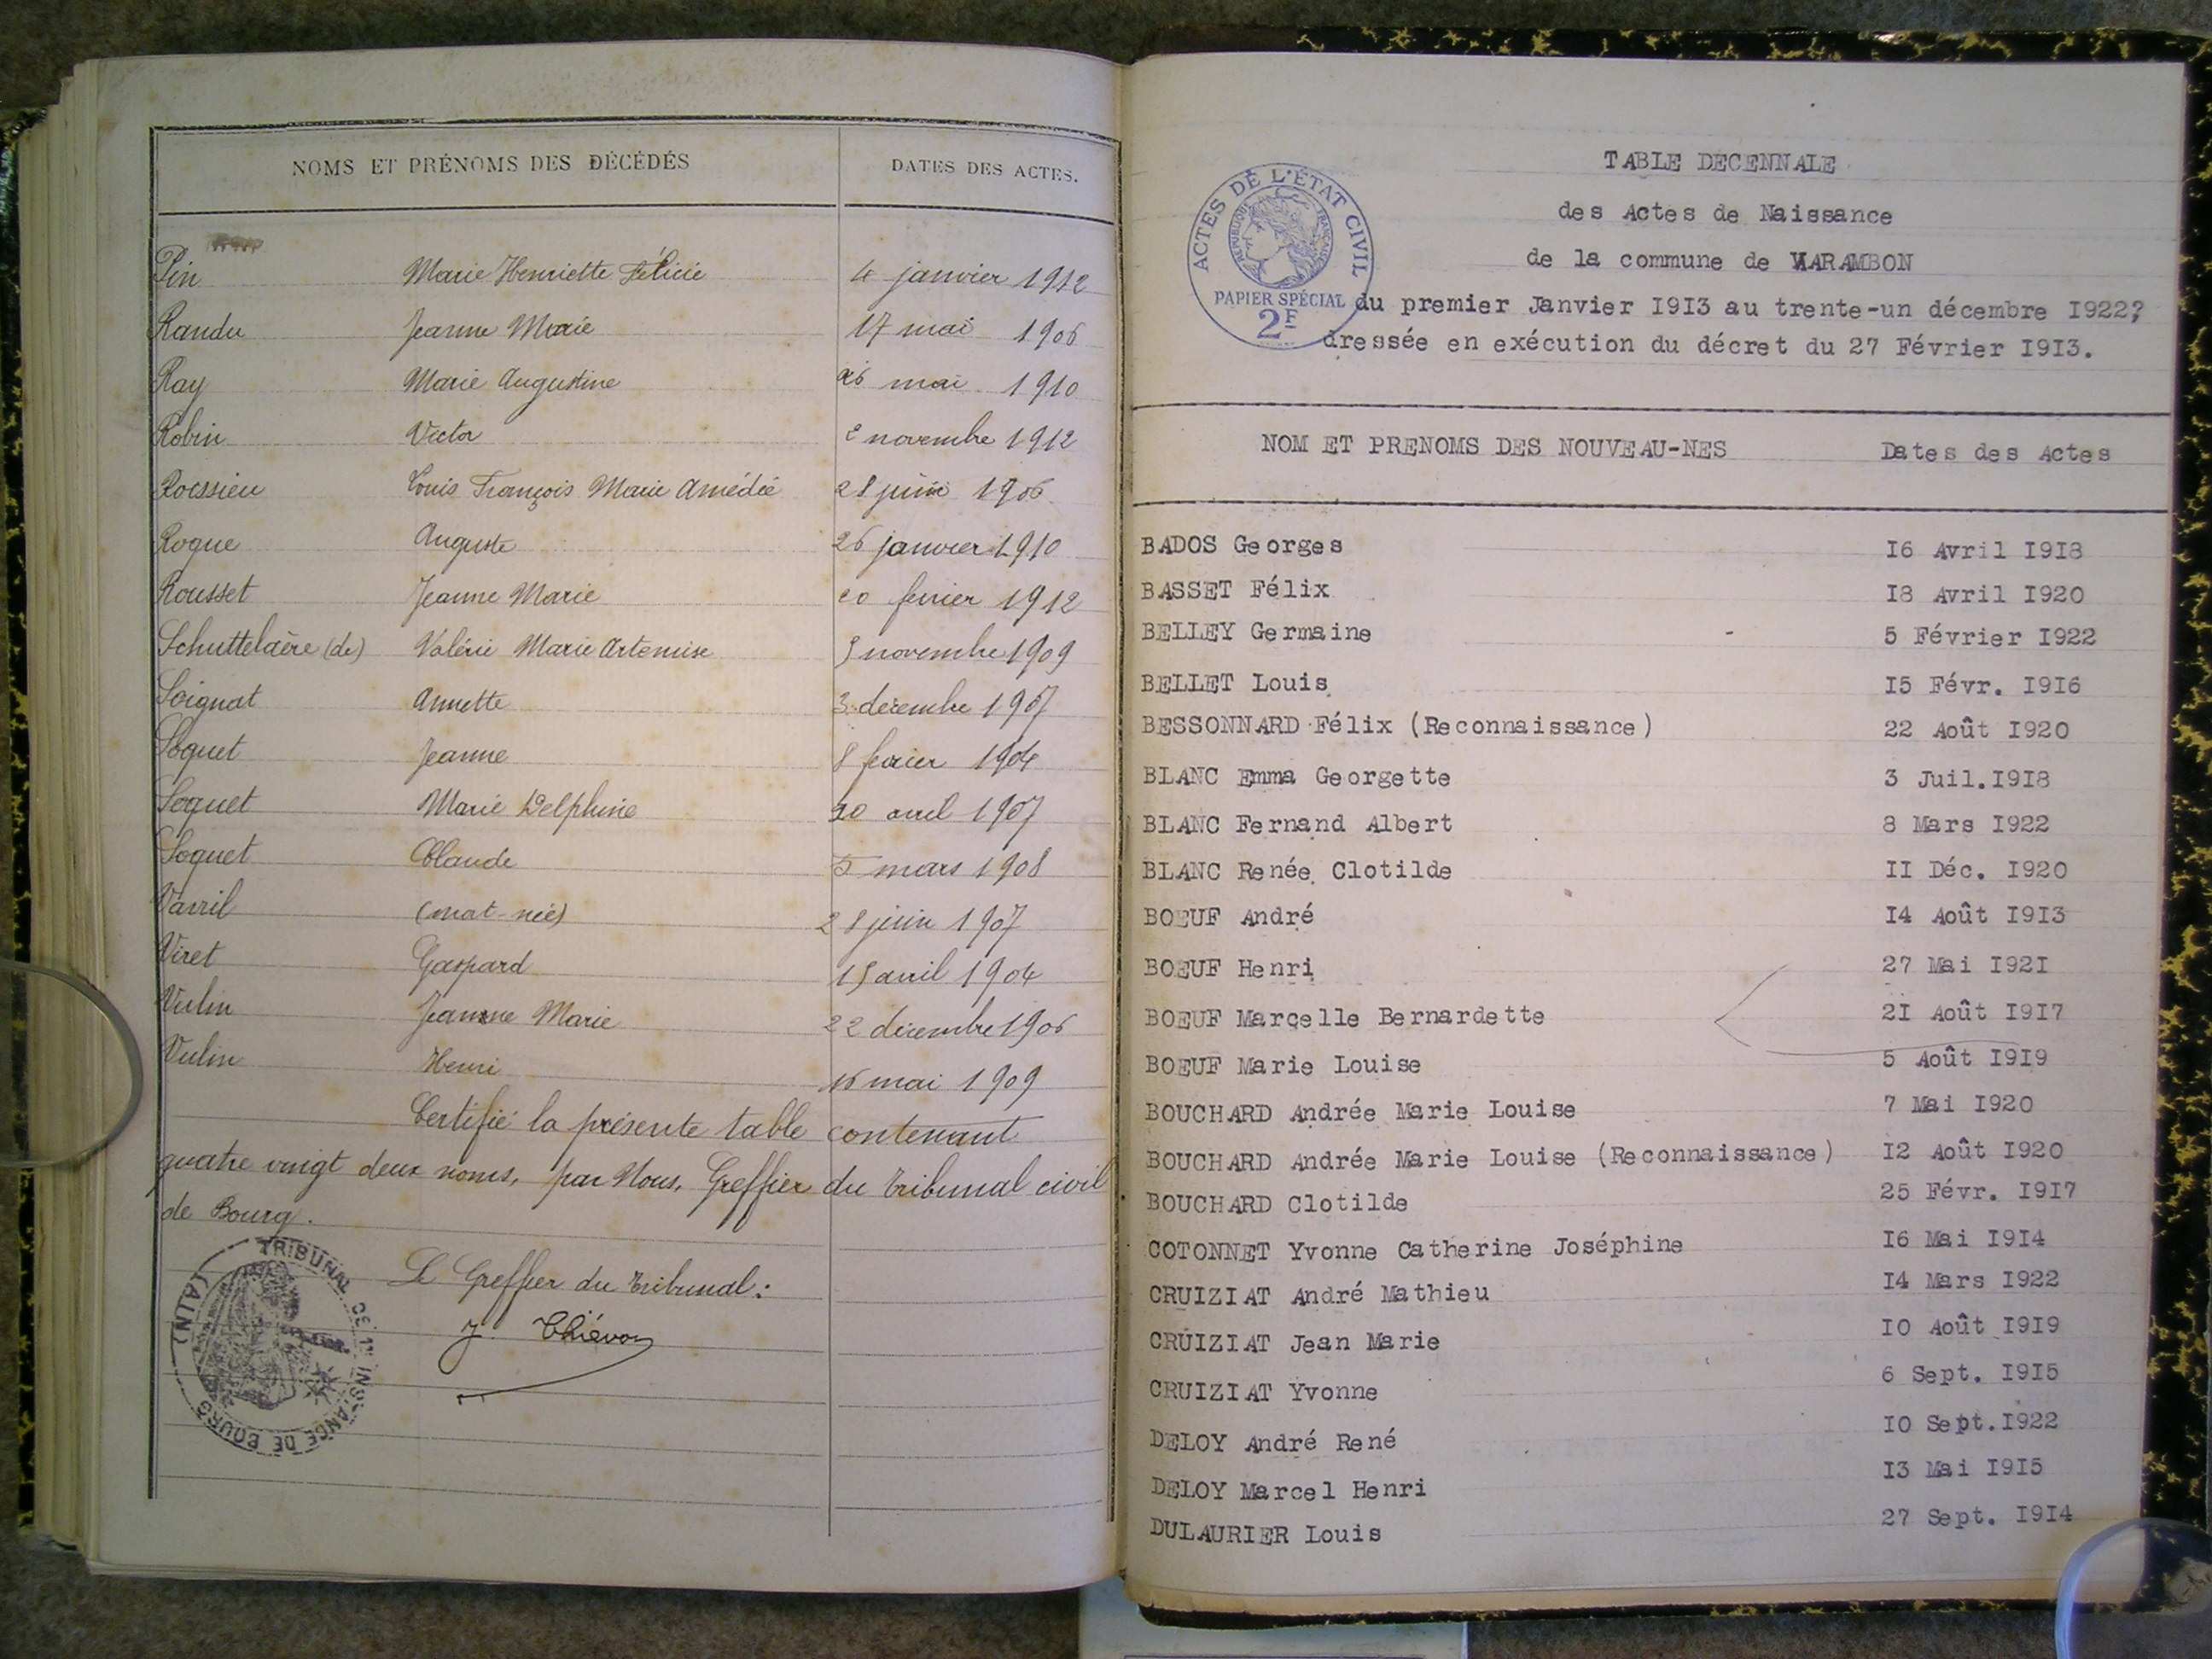 NOMS ET PRÉNOMS DES DÉCÉDÉS DATES DES ACTES.
Pin Marie Henriette Félicie 4 janvier 1912
Randu Jeanne Marie 17 mai 1906
Ray Marie Augustine 26 mai 1910
Robin Victor 2 novembre 1912
Roissieu Louis François Marie Amédée 28 juin 1906
Roque Auguste 26 janvier 1910
Rousset Jeanne Marie 20 février 1912
Schuttelaère (de) Valérie Marie Artemise 5 novembre 1909
Soignat Annette 3 décembre 1907
Soquet Jeanne 8 février 1904
Soquet Marie Delphine 20 avril 1907
Soquet Claude 5 mars 1908
Vavril (mort-née) 28 juin 1907
Viret Gaspard 15 avril 1904
Vulin Jeanne Marie 22 décembre 1906
Vulin Henri 16 mai 1909
Certifié la présente table contenant
quatre vingt deux noms, par Nous, Greffier du Tribunal civil
de Bourg.
Le Greffier du Tribunal:
TRIBUNAL DE 1RE INSTANCE DE BOURG (AIN)
TABLE DECENNALE
des Actes de Naissance
de la commune de VARAMBON
du premier Janvier I9I3 au trente-un décembre I922?
dressée en exécution du décret du 27 Février I9I3.
ACTES DE L'ÉTAT CIVIL
RÉPUBLIQUE FRANÇAISE
PAPIER SPÉCIAL
2F
NOM ET PRENOMS DES NOUVEAU-NES Dates des Actes
BADOS Georges I6 Avril I9I8
BASSET Félix I8 Avril I920
BELLEY Germaine 5 Février I922
BELLET Louis I5 Févr. I9I6
BESSONNARD Félix (Reconnaissance) 22 Août I920
BLANC Emma Georgette 3 Juil.I9I8
BLANC Fernand Albert 8 Mars I922
BLANC Renée Clotilde II Déc. I920
BOEUF André I4 Août I9I3
BOEUF Henri 27 Mai I92I
BOEUF Marcelle Bernardette 2I Août I9I7
BOEUF Marie Louise 5 Août I9I9
BOUCHARD Andrée Marie Louise 7 Mai I920
BOUCHARD Andrée Marie Louise (Reconnaissance) I2 Août I920
BOUCHARD Clotilde 25 Févr. I9I7
COTONNET Yvonne Catherine Joséphine I6 Mai I9I4
CRUIZIAT André Mathieu I4 Mars I922
CRUIZIAT Jean Marie I0 Août I9I9
CRUIZIAT Yvonne 6 Sept. I9I5
DELOY André René I0 Sept.I922
DELOY Marcel Henri I3 Mai I9I5
DULAURIER Louis 27 Sept. I9I4